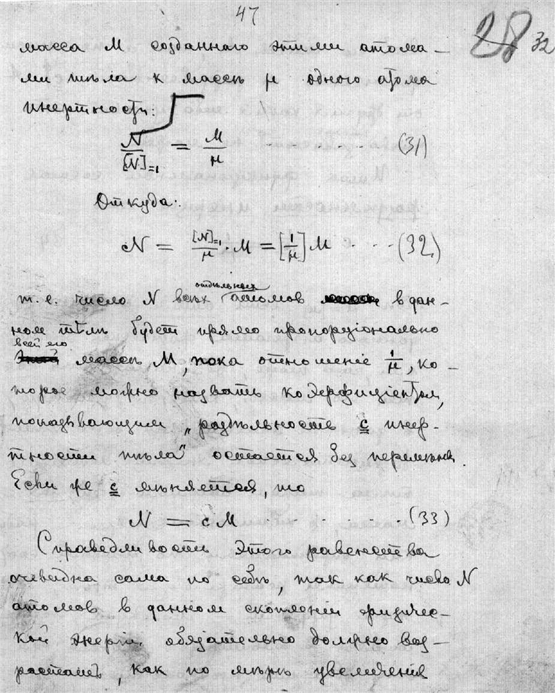 47
28 32
масса М созданнаго этими атома-
ми тѣла к массѣ μ одного атома
инертности:
N/[N]=1 = М/μ · · · (31)
Откуда:
N = [N]=1/μ · М = [1/μ] М · · · (32)
т. е. число N всѣх отдѣльных атомов в дан-
ном тѣлѣ будет прямо пропорціонально
всей его массѣ М, пока отношеніе 1/μ, ко-
торое можно назвать коэффиціентом,
показывающим „раздѣльность с инер-
тности тѣла" остается без перемѣны.
Если же с мѣняется, то
N = с М · · · (33)
Справедливость этого равенства
очевидна сама по себѣ, так как число N
атомов в данном скопленіи физичес-
кой энергіи обязательно должно воз-
растать, как по мѣрѣ увеличенія